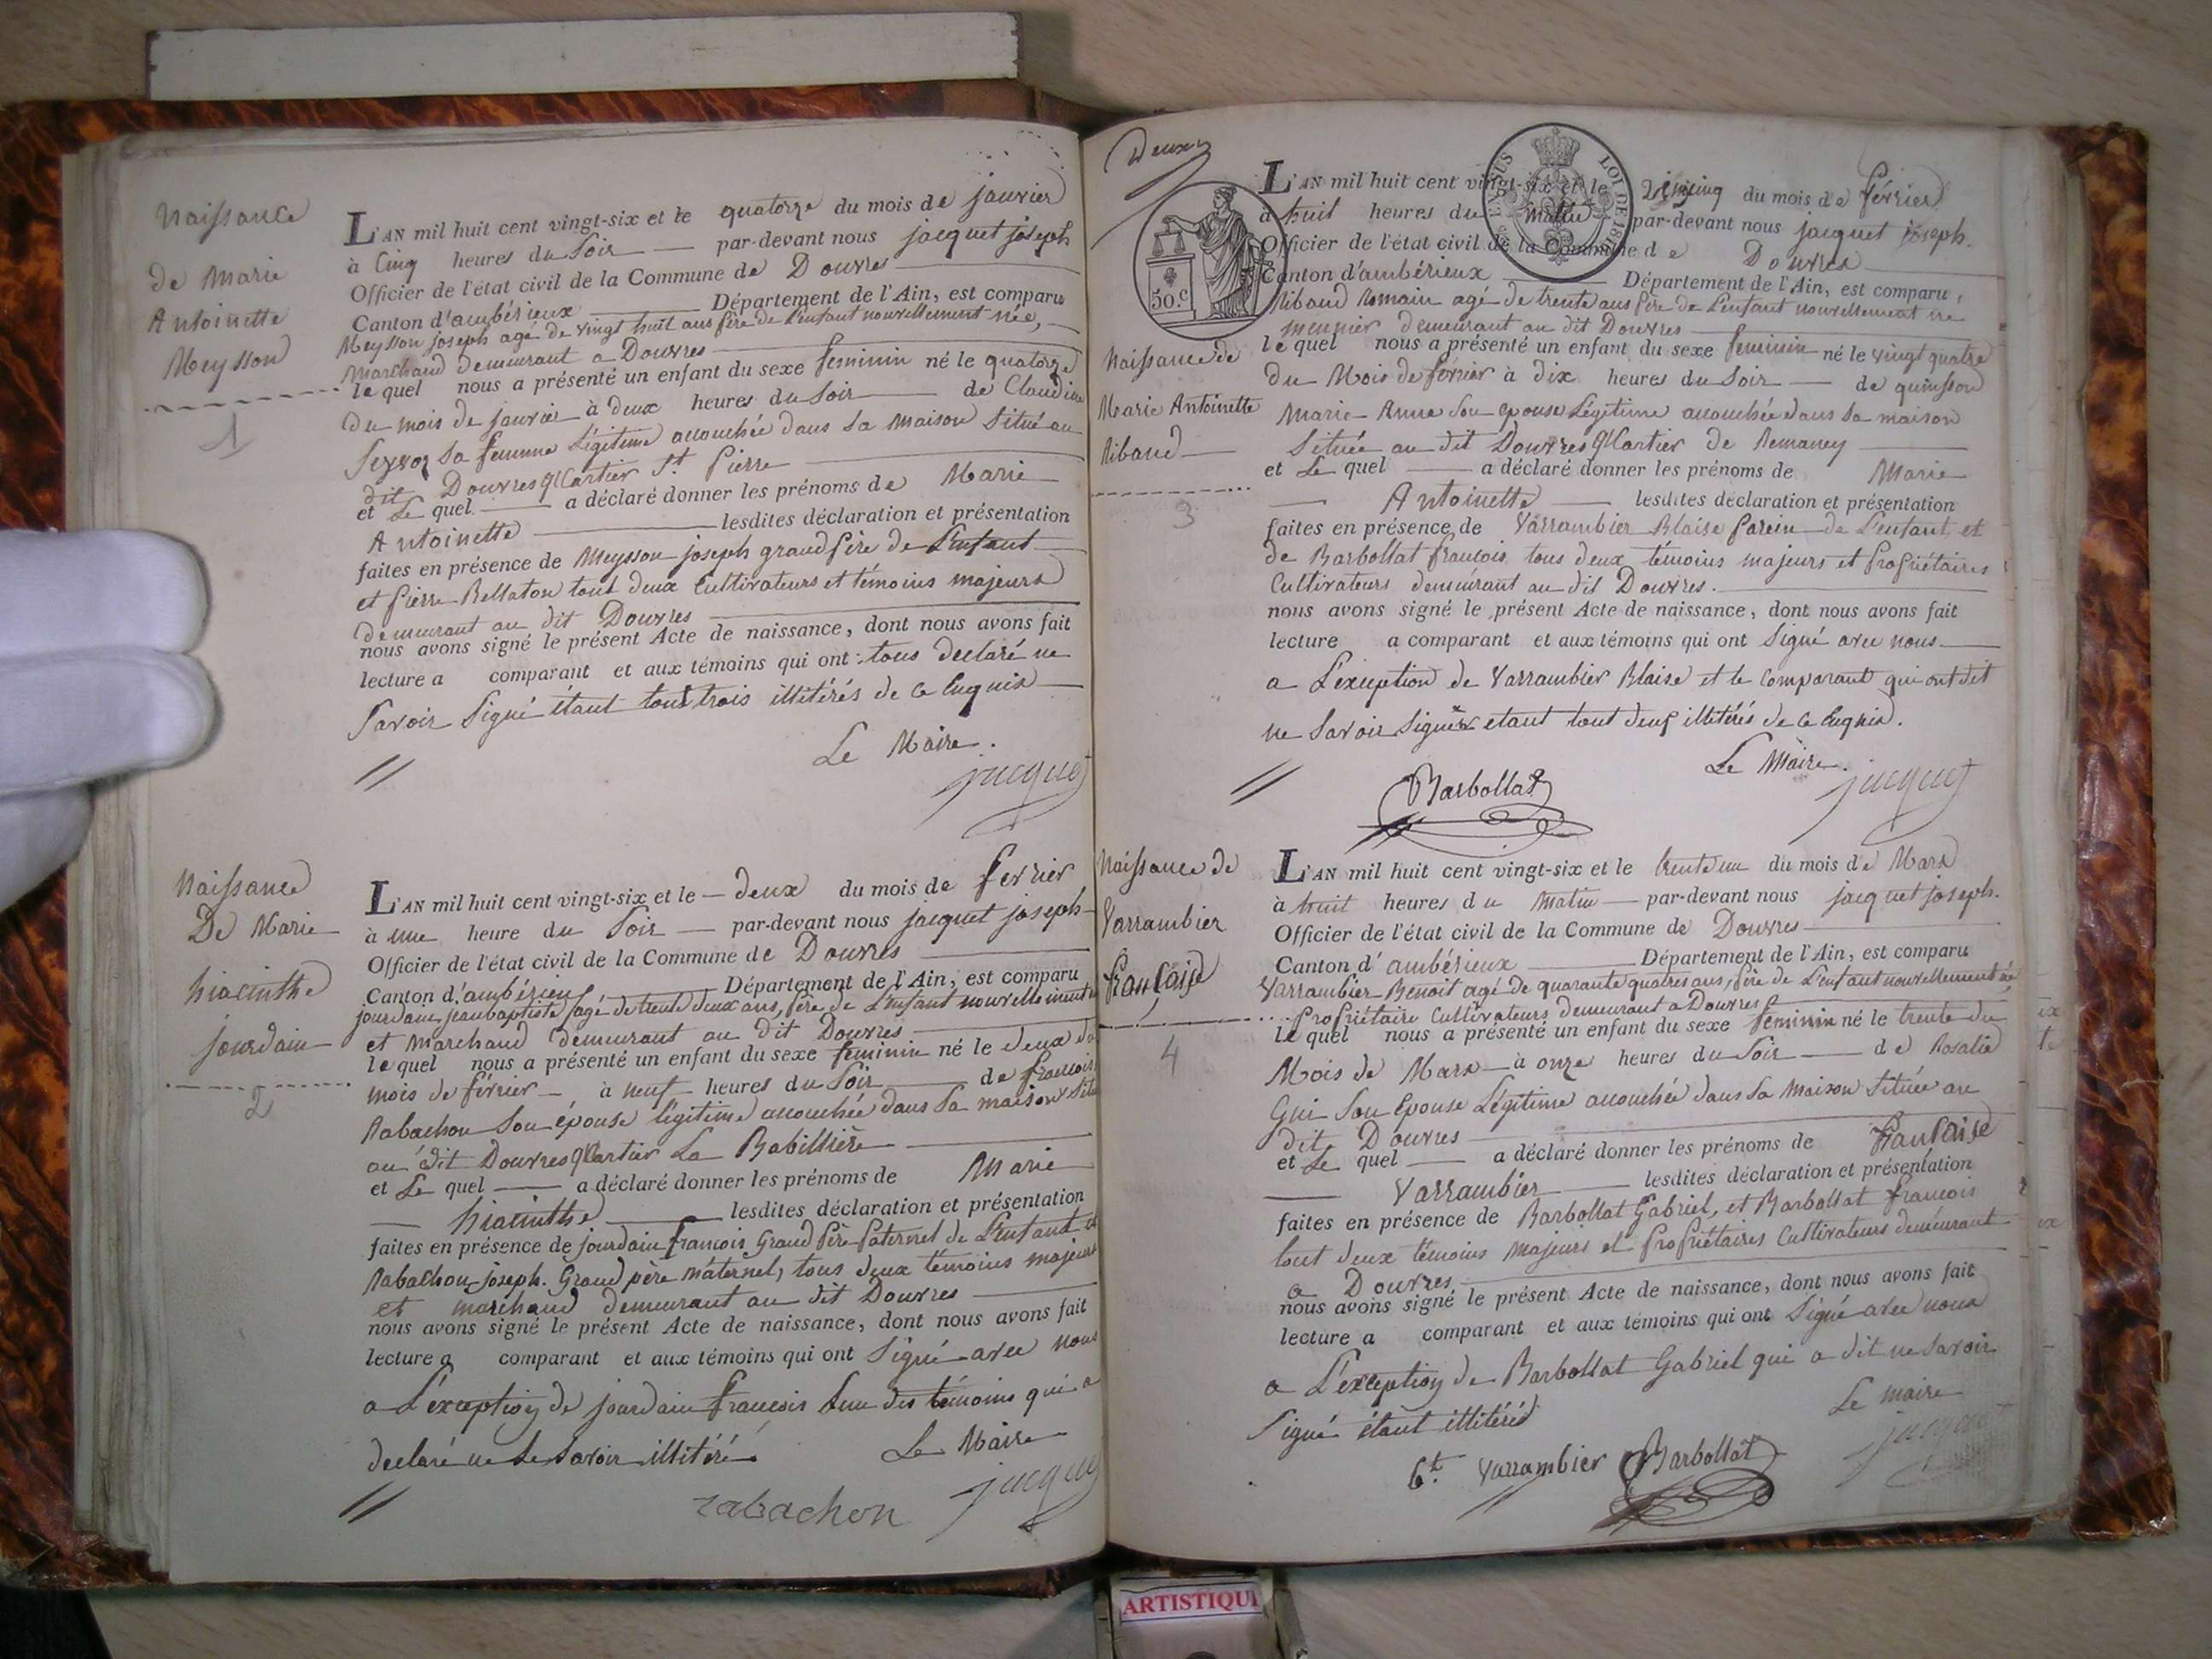 Naissance
de Marie
Antoinette
Meysson
1
L'AN mil huit cent vingt-six et le quatorze du mois de janvier
à Cinq heures du Soir par-devant nous jacquet joseph
Officier de l'état civil de la Commune de Douvres
Canton d'ambérieux Département de l'Ain, est comparu
Meysson joseph agé de vingt huit ans père de L'enfant nouvellement née,
Marchand demeurant a Douvres
le quel nous a présenté un enfant du sexe feminin né le quatorze
du mois de janvier à deux heures du Soir de Claudine
sa femme Légitime accouchée dans sa maison Situé au
dit Douvres qUartier St Pierre
et Le quel a déclaré donner les prénoms de Marie
Antoinette lesdites déclaration et présentation
faites en présence de Meysson joseph grand père de L'enfant
et pierre Bellaton tout deux Cultivateurs et témoins majeurs
demeurant au dit Douvres
nous avons signé le présent Acte de naissance, dont nous avons fait
lecture a comparant et aux témoins qui ont tous declaré ne
Savoir Signé étant tous trois illitérés de ce Enquis
Le Maire.
jacquet
Naissance
De Marie
hiacinthe
jourdain
2
L'AN mil huit cent vingt-six et le deux du mois de fevrier
à une heure du Soir par-devant nous jacquet joseph
Officier de l'état civil de la Commune de Douvres
Canton d'ambérieux Département de l'Ain, est comparu
jourdain jeanbaptiste agé de trente deux ans, père de L'enfant nouvellement
et Marchand demeurant au dit Douvres
le quel nous a présenté un enfant du sexe feminin né le deux du
mois de février à neuf heures du Soir de
Rabachon Son épouse légitime accouchée dans sa maison
au dit Douvres qUartier La Babillière
et Le quel a déclaré donner les prénoms de Marie
hiacinthe lesdites déclaration et présentation
faites en présence de jourdain françois Grand père paternel de L'enfant et
Rabachon joseph. Grand père maternel, tous deux témoins majeurs
et marchand demeurant au dit Douvres
nous avons signé le présent Acte de naissance, dont nous avons fait
lecture a comparant et aux témoins qui ont Signé avec nous
a L'exception de jourdain françois L'un des témoins qui a
declaré ne le savoir illitéré
Le Maire
rabachon jacquet
Deux
50.c
LOI DE 1816
L'AN mil huit cent vingt-six et le du mois de février
à huit heures du matin par-devant nous jacquet joseph.
Officier de l'état civil de la Commune de Douvres
Canton d'ambérieux Département de l'Ain, est comparu,
Ribaud Romain agé de trente ans père de L'enfant nouvellement né
meunier demeurant au dit Douvres
le quel nous a présenté un enfant du sexe feminin né le vingt quatre
du Mois de février à dix heures du Soir de quinson
Marie Anne Son epouse Légitime accouchée dans sa maison
Située au dit Douvres qUartier de Remaney
et Le quel a déclaré donner les prénoms de Marie
Antoinette lesdites déclaration et présentation
faites en présence de Varrambier Blaise parein de L'enfant et
de Barbollat françois tous deux témoins majeurs et propriétaires
Cultivateurs demeurant au dit Douvres.
nous avons signé le présent Acte de naissance, dont nous avons fait
lecture a comparant et aux témoins qui ont Signé avec nous
a L'exception de Varrambier Blaise et le Comparant qui ont dit
ne Savoir Signer etant tout deux illitérés de ce Enquis.
Le Maire.
Barbollat jacquet
Naissance de
Marie Antoinette
Ribaud
3
Naissance de
Varrambier
françoise
4
L'AN mil huit cent vingt-six et le trente un du mois de Mars
à huit heures du Matin par-devant nous jacquet joseph.
Officier de l'état civil de la Commune de Douvres
Canton d'ambérieux Département de l'Ain, est comparu
Varrambier Benoit agé de quarante quatres ans, père de L'enfant nouvellement né
Propriétaire Cultivateurs demeurant a Douvres
le quel nous a présenté un enfant du sexe feminin né le trente du
Mois de Mars à onze heures du Soir de Rosalie
Gui Son Epouse Légitime accouchée dans Sa Maison Située au
dit Douvres
et Le quel a déclaré donner les prénoms de françoise
Varrambier lesdites déclaration et présentation
faites en présence de Barbollat Gabriel, et Barbollat françois
tout deux témoins majeurs et propriétaires Cultivateurs demeurant
a Douvres
nous avons signé le présent Acte de naissance, dont nous avons fait
lecture a comparant et aux témoins qui ont Signé avec nous
a L'exception de Barbollat Gabriel qui a dit ne savoir
Signé étant illitéré
Le maire
Bt. Varrambier Barbollat jacquet
ARTISTIQU